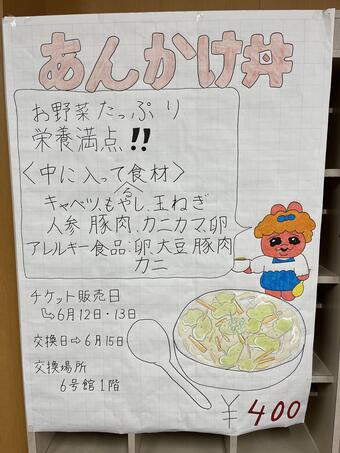 あんかけ丼
お野菜たっぷり
栄養満点!!
〈中に入ってる食材〉
キャベツ、もやし、玉ねぎ
人参、豚肉、カニカマ、卵
アレルギー食品:卵、大豆、豚肉、
カニ
チケット販売日
↳6月12日・13日
交換日→6月15日
交換場所
6号館1階
¥400